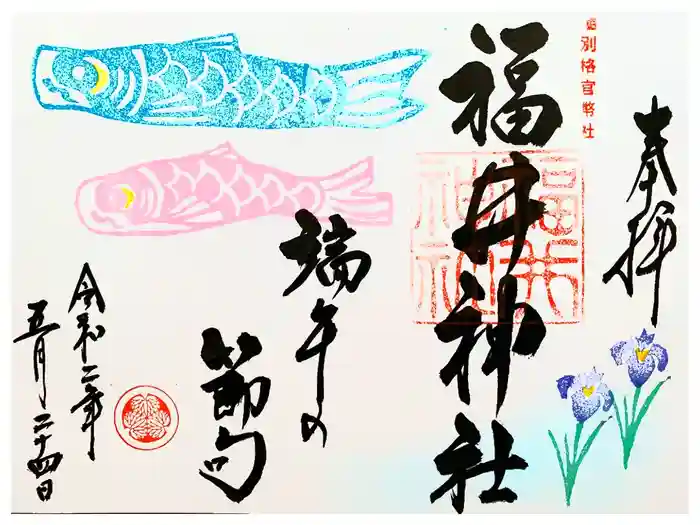 奉拝
別格官幣社
福井神社
福井神社
端午の
節句
令和二年
五月二十四日